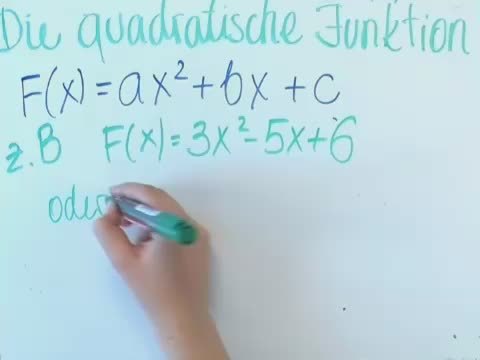 Die quadratische Funktion
F(x)=ax²+bx+c
z.B F(x)=3x²-5x+6
oder